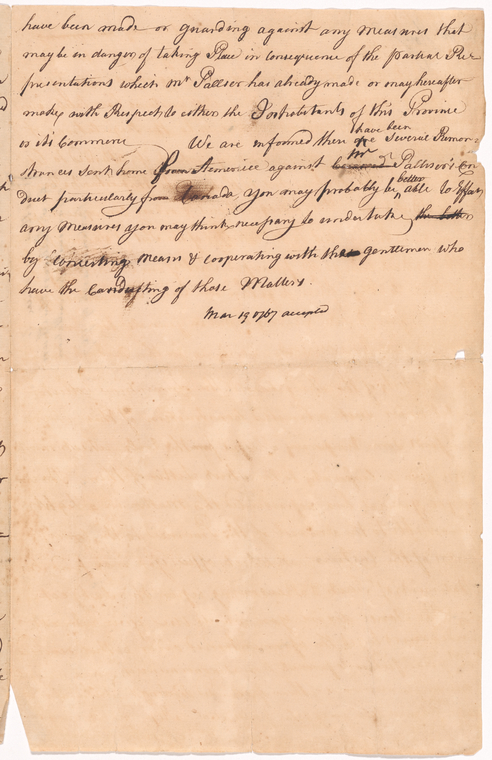 have been made or guarding against any Measures that
may be in danger of taking Place in consequence of the partial Re-
presentations which Mr Palliser has already made or may hereafter
make, with Respect to either the Inhabitants of this Province
or its Commerce We are informed there have been Several Remon-
strances sent home from America against Mr Palliser's Con
duct particularly from Canada, you may probably be better able to Effect
any Measures you may think necessary to undertake,
by Concerting Means & cooperating with those Gentlemen who
have the Conducting of those Matters.
Mar 19 1767 accepted